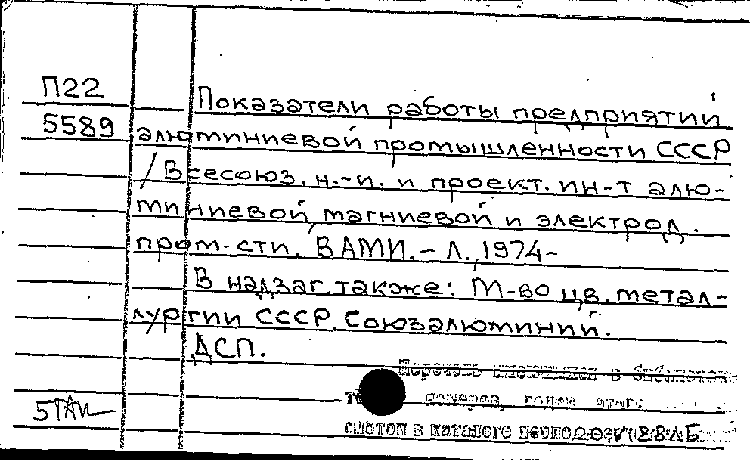 П22
5589
Показатели работы предприятий
алюминиевой промышленности СССР
/ Всесоюз. н.-и. и проект. ин-т алю-
миниевой, магниевой и электрод.
пром-сти. ВАМИ. – Л., 1974-
В надзаг. также: М-во цв. метал-
лургии СССР. Союзалюминий.
ДСП.
Перечень имеющихся в библиотеке
номеров, года
смотри в каталоге